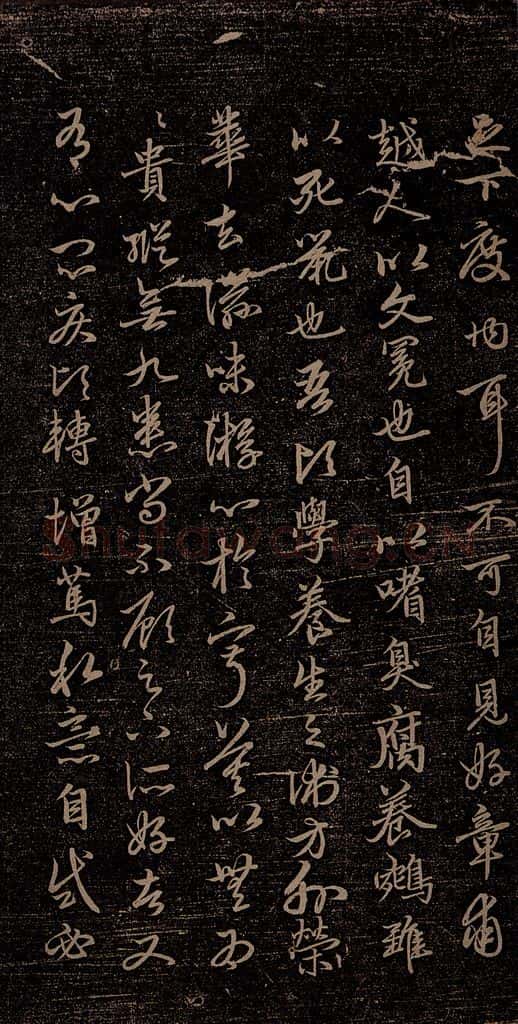 足下度内耳不可自見好章甫
越人以文冕也自以嗜臭腐養鵷雛
以死鼠也吾頃學養生之術方外榮
華去滋味游心於寂莫以無為
〻貴縱無九患尚不顧足下所好者又
有心悶疾頃轉增篤私意自試必
Shufawang.CN